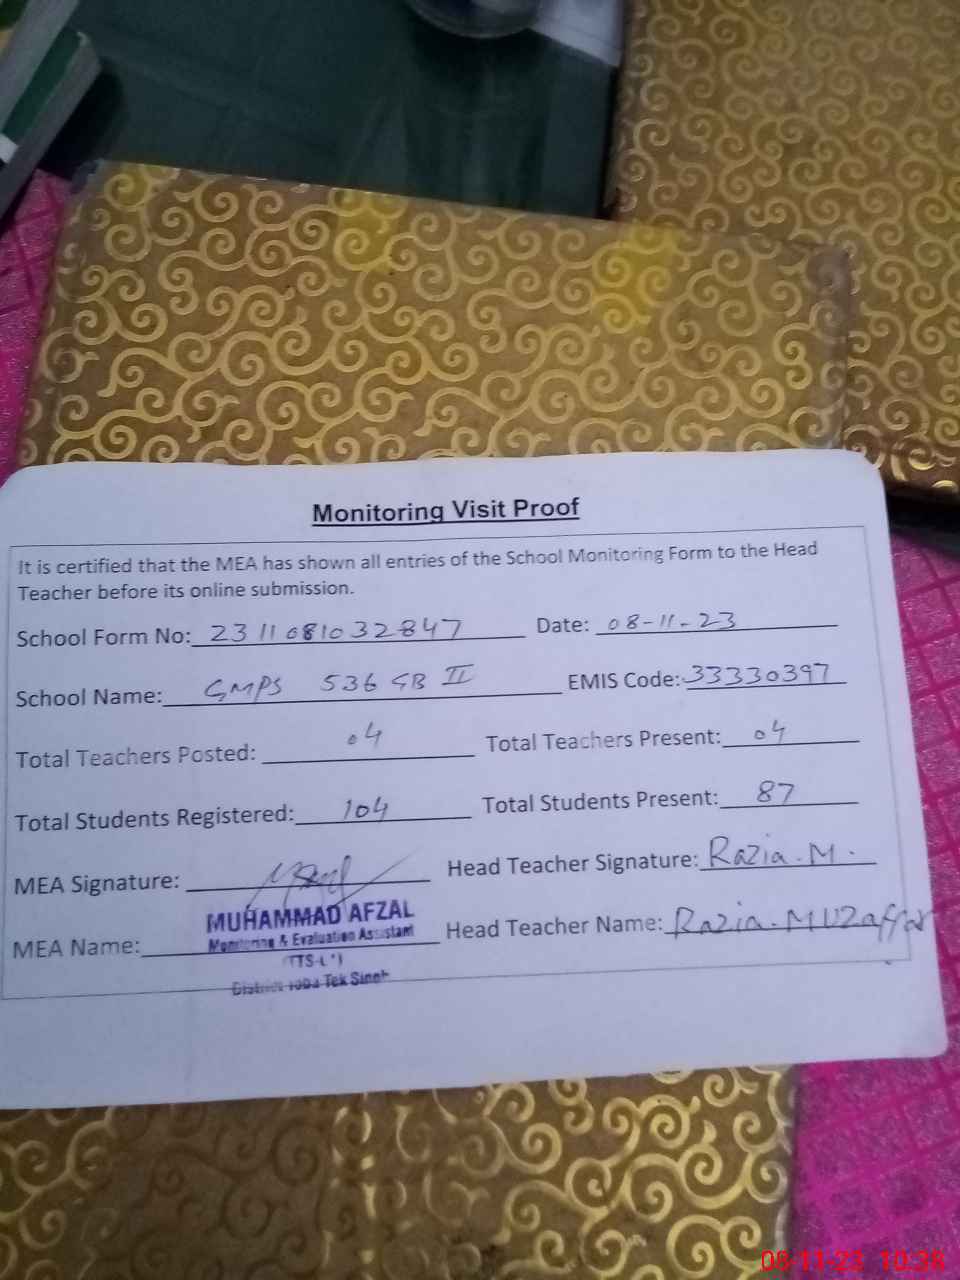 Monitoring Visit Proof
It is certified that the MEA has shown all entries of the School Monitoring Form to the Head
Teacher before its online submission.
School Form No: 2311081032847 Date: 08-11-23
School Name: GMPS 536 GB II EMIS Code: 33330397
Total Teachers Posted: 04 Total Teachers Present: 04
Total Students Registered: 104 Total Students Present: 87
MEA Signature: Head Teacher Signature: Razia.M.
MEA Name: MUHAMMAD AFZAL Head Teacher Name: Razia.Muzaffar
Monitoring & Evaluation Assistant
District Toba Tek Singh
08-11-23 10:38